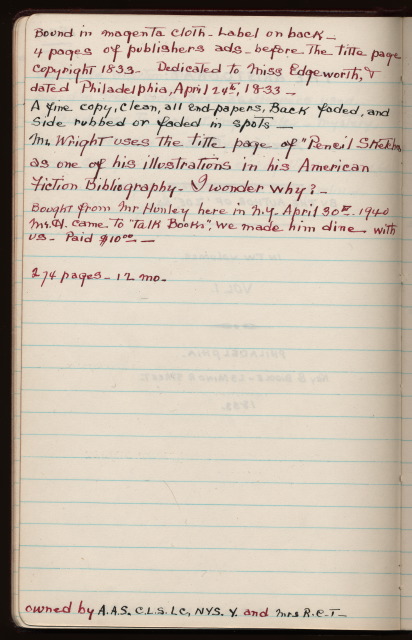 Bound in magenta cloth - Label on back -
4 pages of publishers ads - before the title page
Copyright 1833 - Dedicated to Miss Edgeworth, &
dated Philadelphia, April 24th, 1833 -
A fine copy, clean, all end-papers, Back faded, and
side rubbed or faded in spots -
Mr. Wright uses the title page of "Pencil Sketches
as one of his illustrations in his American
Fiction Bibliography - I wonder why? -
Bought from Mr Hunley here in N.Y. April 30th 1940
Mr. H. came to "Talk Books", we made him dine with
us - Paid $10.00 -
274 pages - 12 mo.
owned by A.A.S. C.L.S. L.C. NYS. Y. and Mrs R.C.T-